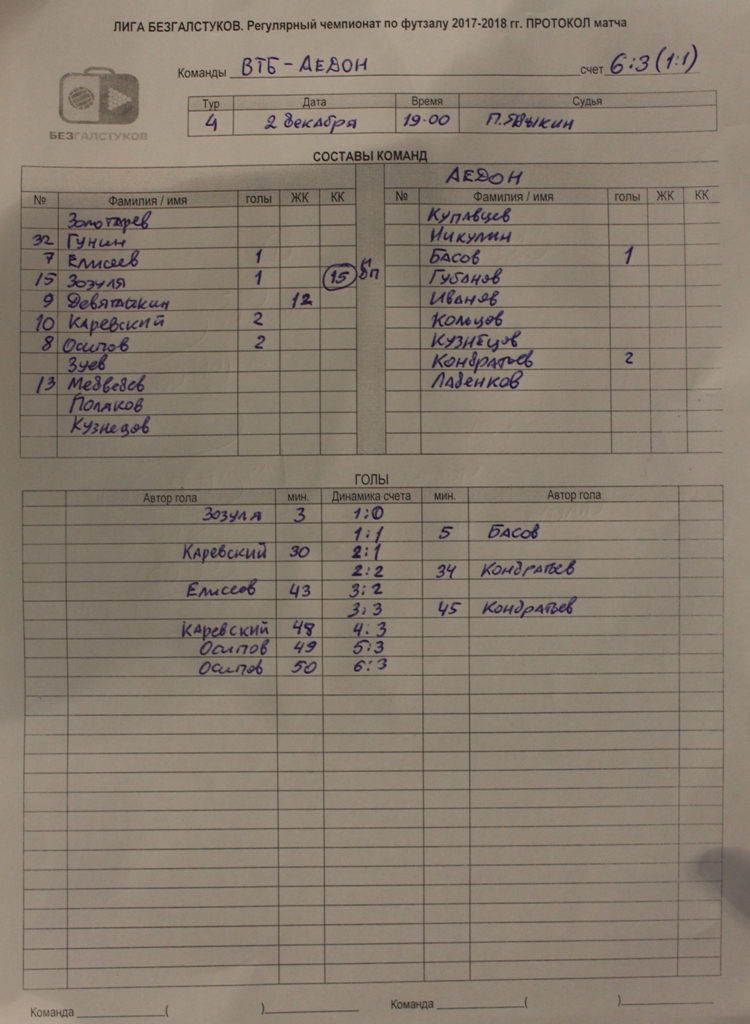 ЛИГА БЕЗГАЛСТУКОВ. Регулярный чемпионат по футзалу 2017-2018 гг. ПРОТОКОЛ матча
Команды ВТБ - АЕДОН счет 6:3 (1:1)
БЕЗГАЛСТУКОВ
Тур Дата Время Судья
4 2 декабря 19-00 П.
СОСТАВЫ КОМАНД
АЕДОН
№ Фамилия / имя голы ЖК КК № Фамилия / имя голы ЖК КК
Золотарев Купавцев
32 Гунин Никулин
7 Елисеев 1 Басов 1
15 Зозуля 1 15 Губанов
9 Девяткин 12 Иванов
10 Каревский 2 Кольцов
8 Осипов 2 Кузнецов
Зуев Кондратьев 2
13 Медведев Ладенков
Поляков
Кузнецов
ГОЛЫ
Автор гола мин. Динамика счета мин. Автор гола
Зозуля 3 1:0
1:1 5 Басов
Каревский 30 2:1
2:2 34 Кондратьев
Елисеев 43 3:2
3:3 45 Кондратьев
Каревский 48 4:3
Осипов 49 5:3
Осипов 50 6:3
Команда ____________( )____________ Команда ____________( )____________